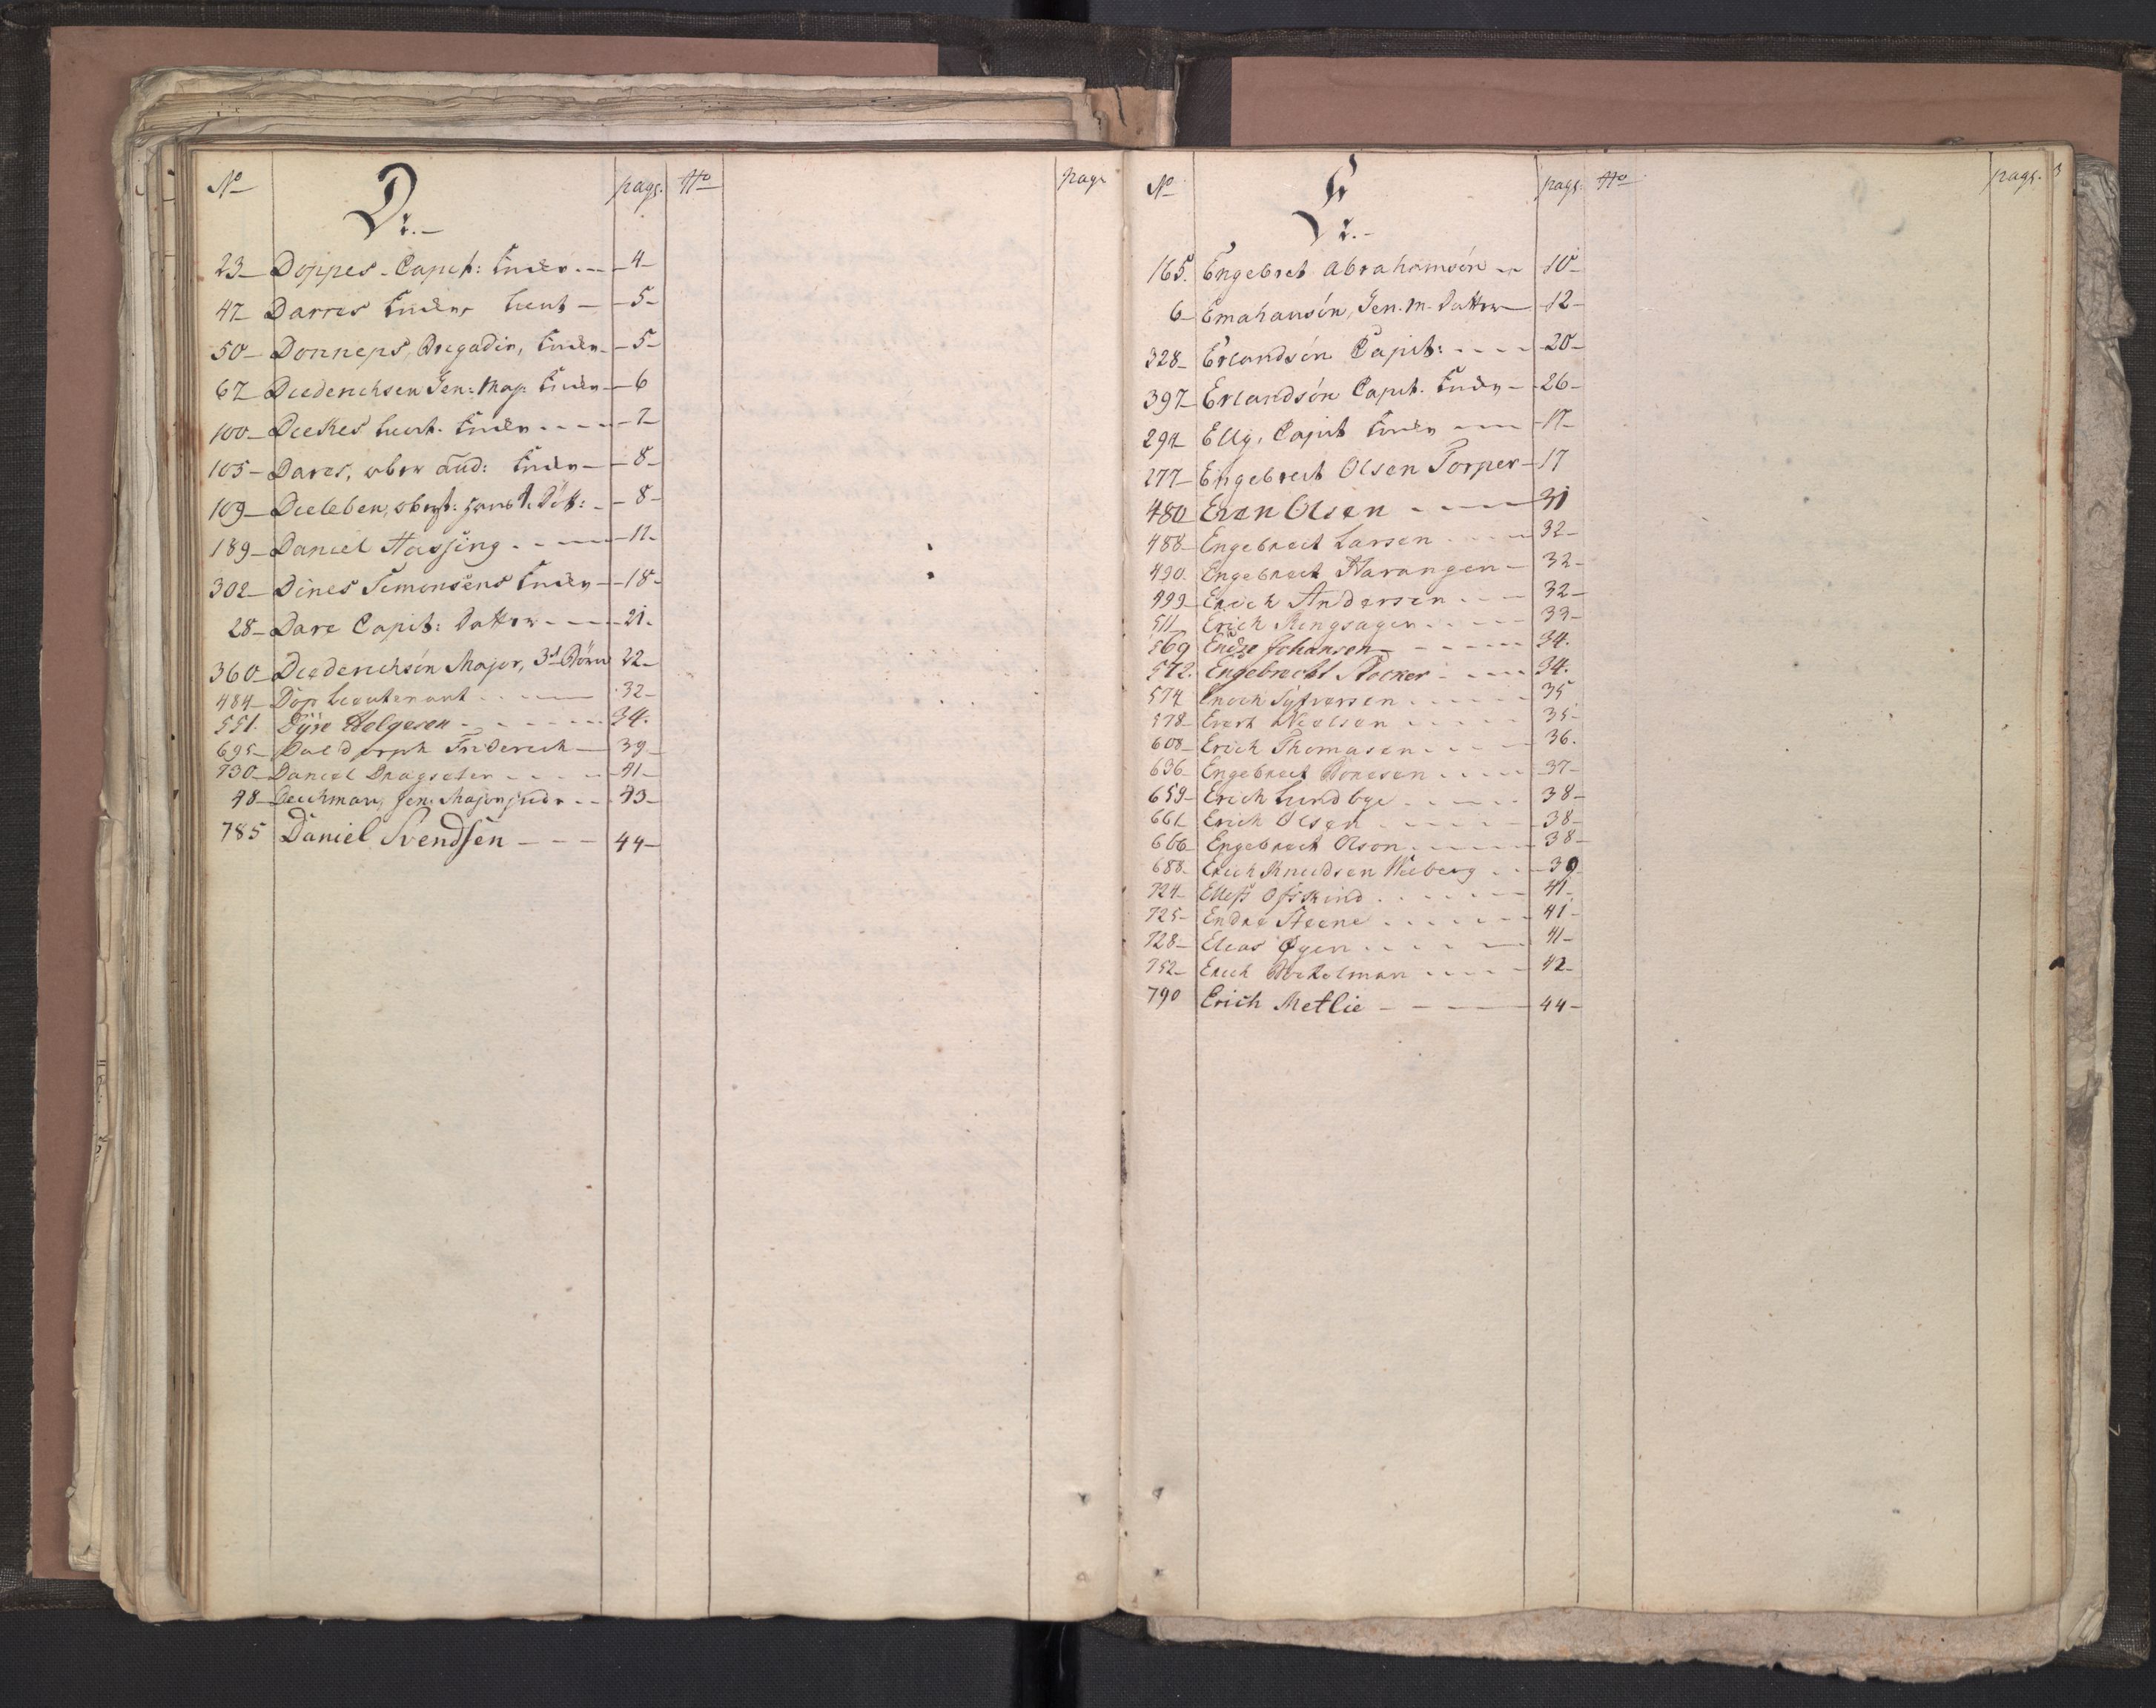 No D. pag: No pag:
23 Doppes Capit: Encke 4
47 Darres Encke Lieut 5
50 Donneps, Bregadir, Encke 5
67 Diederichsen Gen: Maj: Encke 6
100 Lieut. Encke 7
105 Dares, ober Aud: Encke 8
109 8
189 Daniel Hassing 11
302 Dines Simonsens Encke 18
28 Dare Capit: Datter 21
360 Diederichsön Major, 3de Börn 22
484 Dop Lieutenant 32
551. Dÿre Helgesen 34.
695 Daldorph Friderich 39
730 Daniel Dragseter 41
48 Deichman, Gen: Major 43
785 Daniel Svendsen 44
No E. pag: No pag:
165. Engebret Abrahamsön 10
6 Emahausön, Gen. M. Datter 12
328 Erlandsön Capit: 20
397 Erlandsön Capit. Encke 26
294 Ellg, Capit Encke 17
277 Engebrect Olsen Torper 17
480 Even Olsen 31
488 Engebrect Larsen 32
490. Engebrect Harangen 32
499 Erich Andersen 32
511 Erich Ringsager 33
569 Endre Johansen 34.
572. Engebrecht Stocker 34.
574 Enoch Syfversen 35
578 Evert Nielsen 35
608 Erich Thomasen 36.
636 Engebrect Boresen 37
659 Erich Lundbye 38
661 Erich Olsen 38
666 Engebrect Olson 38
688 Erich Knudsen Wiberg 39
724 Ellefs 41
725 Endre Steene 41
728 Elias Øyen 41
752 Erich 42
790 Erich Metlie 44